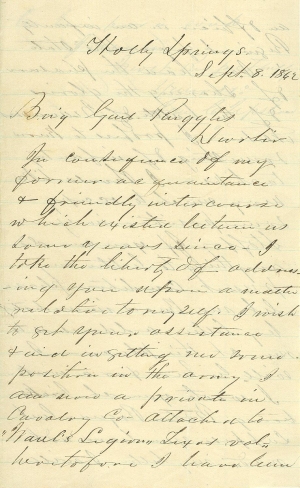 Holly Springs
Sept. 8. 1862
Brig Genl Ruggles
Dear Sir
In consequence of my
former acquaintance
& friendly intercourse
which existed between us
some years since - I
take the liberty of address
-ing you upon a matter
relative to myself. I wish
to get your assistance
& aid in getting me some
position in the army I
am now a private in
Cavalry Co attached to
"Waul's Legion" Texas vol"
heretofore I have been